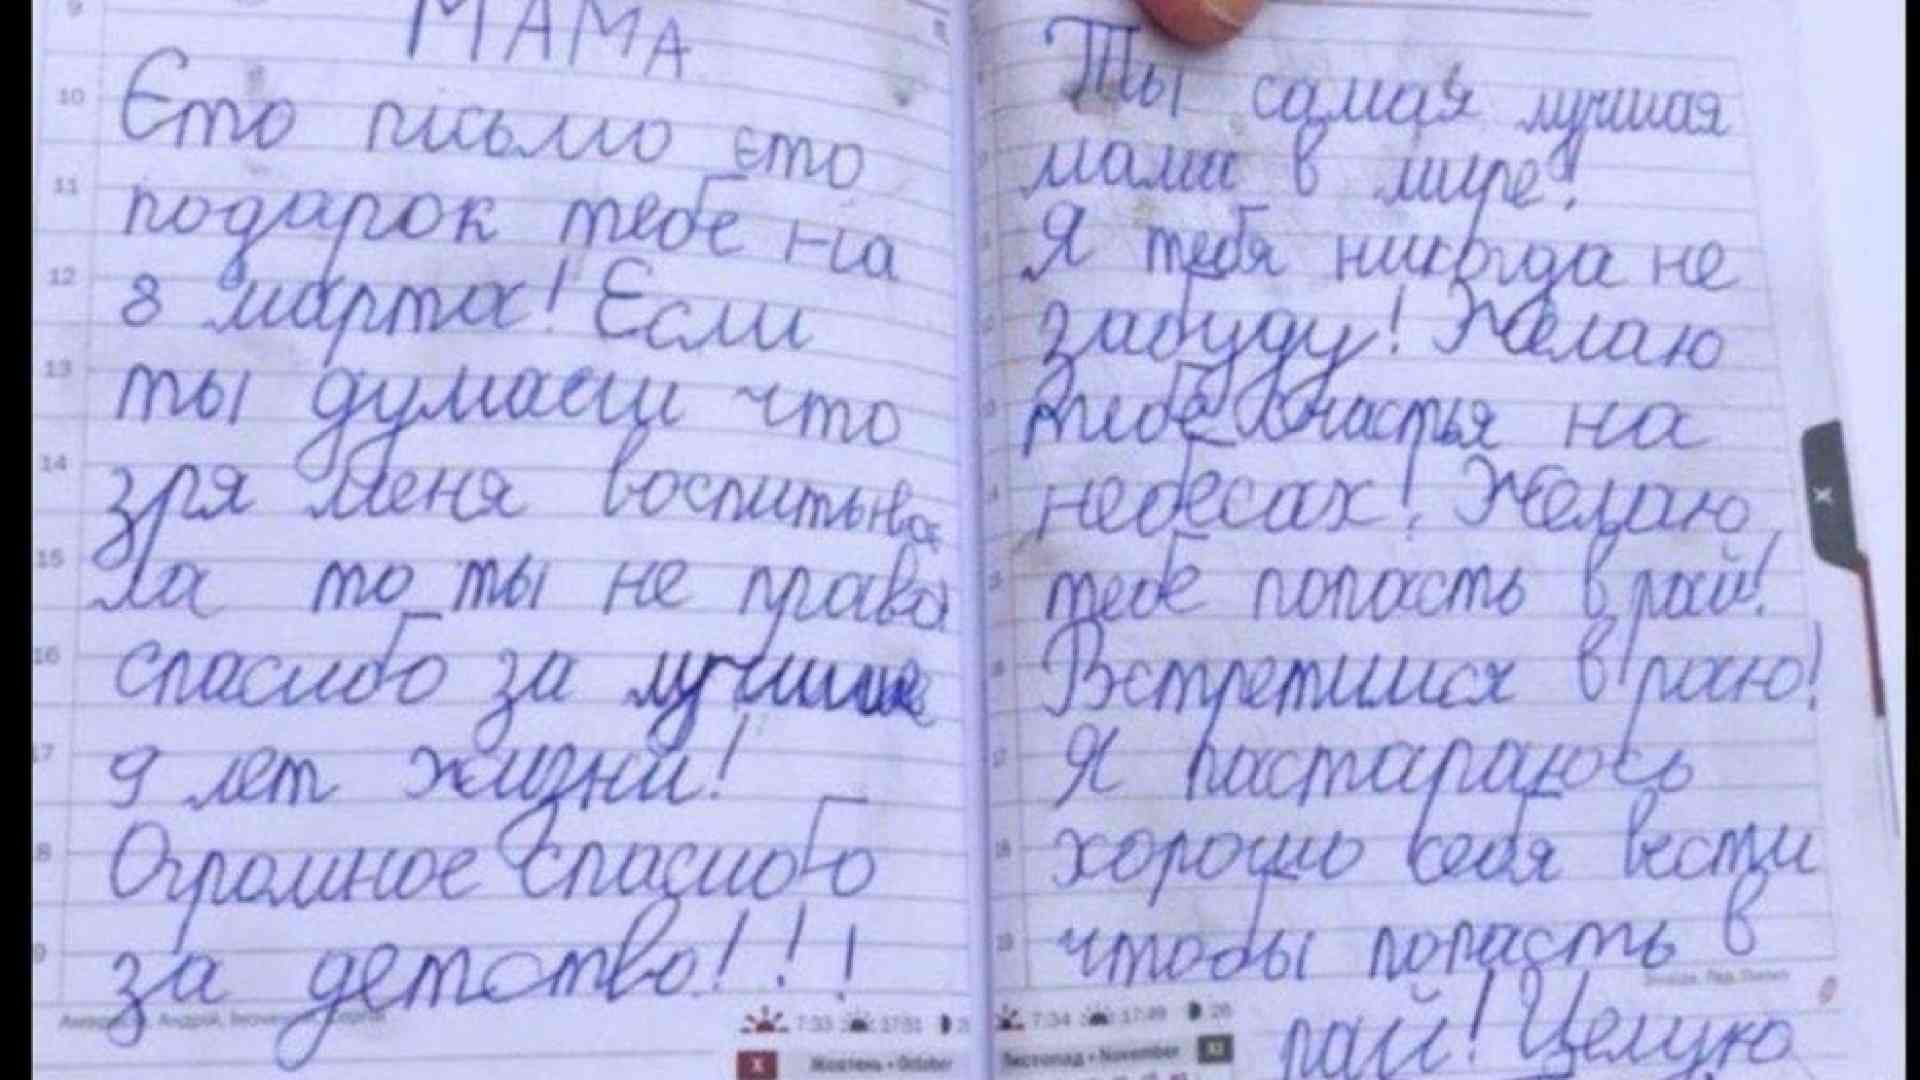 МАМА
Єто письмо єто
подарок тебе на
8 марта! Если
ты думаеш что
зря меня воспитыва
ла то ты не права
спасибо за лучшие
9 лет жизни!
Огромное спасибо
за детство!!!
7:33 17:51
X Жовтень • October
Ты самая лучшая
мама в мире!
Я тебя никогда не
забуду! Желаю
тебе счастья на
небесах! Желаю
тебе попасть в рай!
Встретимся в раю!
Я пастараюсь
хорошо себя вести
чтобы попасть в
рай! Целую
7:34 17:49
Листопад • November XI
X
9
10
11
12
13
14
15
16